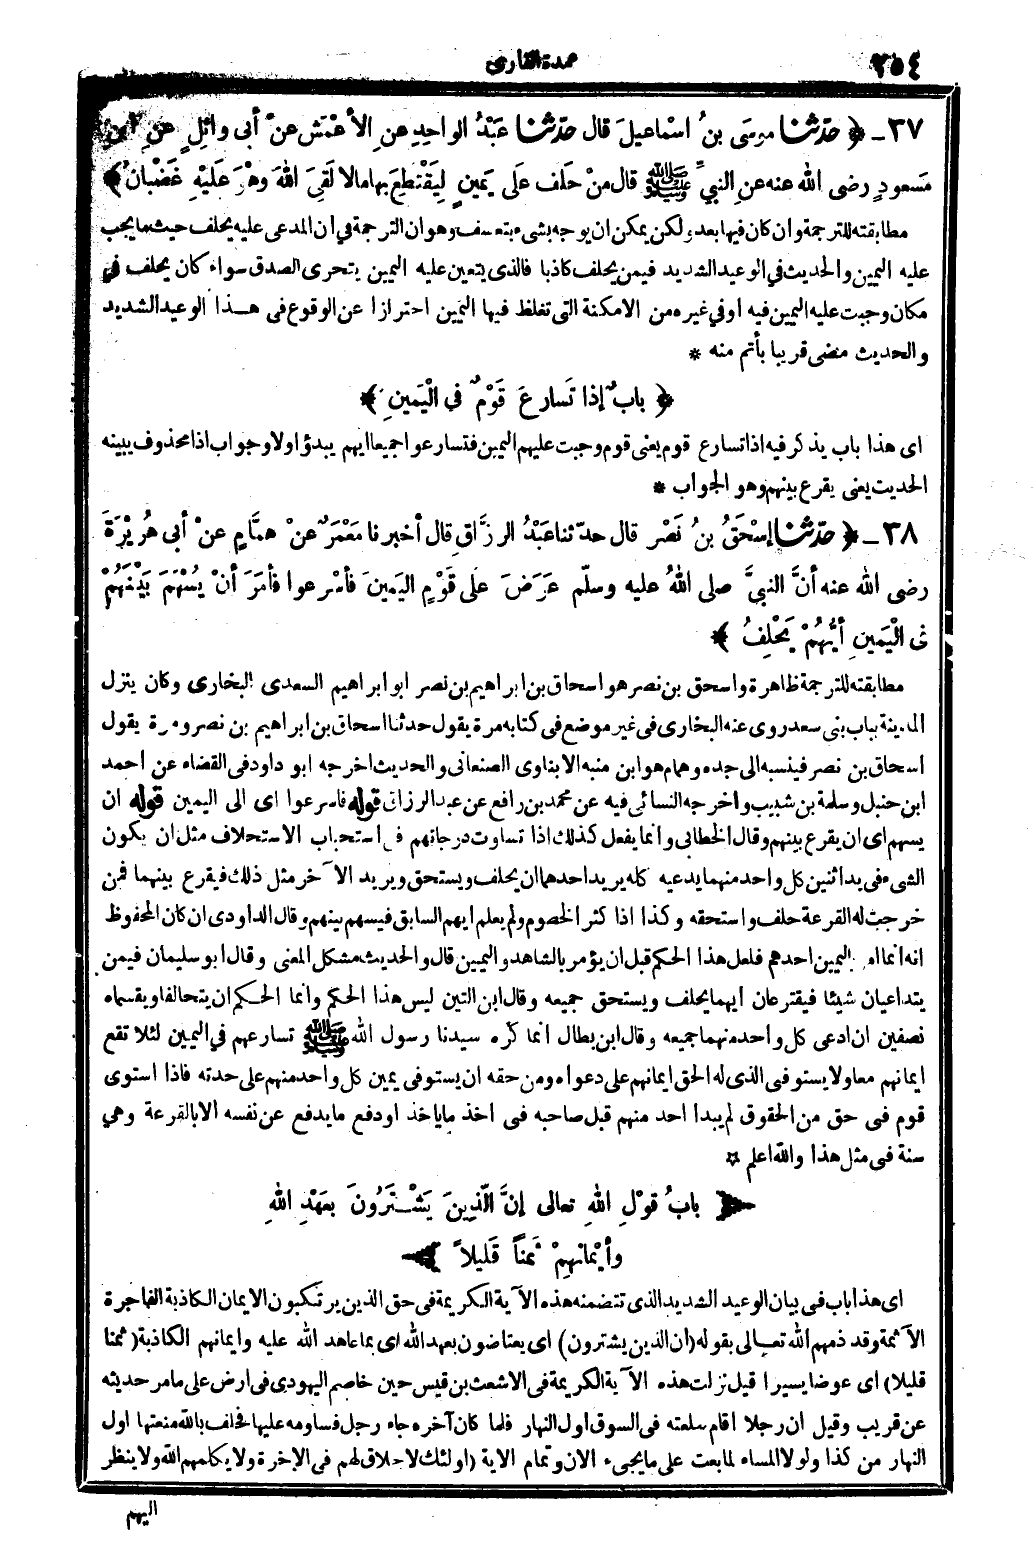 ٢٥٤
عمدة القارى
٣٧ _ ﴿ حدّثنا موسَى بنُ اسْماعيلَ قال حدّثنا عَبْدُ الواحِدِ عنِ الأعْمَشِ عنْ أبى وائِلٍ عنِ ابنِ
مَسعودٍ رضى الله عنه عنِ النبيِّ ﷺ قال منْ حَلَفَ علَى يَمِينٍ لِيَقْتَطِعَ بها مالا لَقِىَ اللهَ وهْوَ عَلَيْهِ غَضْبانُ ﴾
مطابقته للترجمة وان كان فيها بعد ولكن يمكن ان يوجه بشىء بتعسف وهو ان الترجمة في ان المدعى عليه يحلف حيث ما يجب
عليه اليمين والحديث في الوعيد الشديد فيمن يحلف كاذبا فالذى يتعين عليه اليمين يتحرى الصدق سواء كان يحلف في
مكان وجبت عليه اليمين فيه او في غيره من الامكنة التى تغلظ فيها اليمين احترازا عن الوقوع فى هـذا الوعيد الشديد
والحديث مضى قريبا بأتم منه *
﴿ بابٌ إذا تَسارعَ قَوْمٌ في الْيَمينِ ﴾
اى هذا باب يذكر فيه اذا تسارع قوم يعنى قوم وجبت عليهم اليمين فتسارعوا جميعا ايهم يبدؤ اولا وجواب اذا محذوف يبينه
الحديث يعنى يقرع بينهم وهو الجواب *
٣٨ _ ﴿ حدّثنا إسْحَقُ بنُ نَصْرٍ قال حدّثنا عَبْدُ الرزَّاقِ قال أخبرنا مَعْمَرٌ عنْ همَّامٍ عنْ أبى هُرَيْرَةَ
رضى الله عنه أنَّ النبيَّ صلى اللهُ عليه وسلّم عَرَضَ علَى قَوْمٍ اليَمِينَ فأسْرعوا فأمَرَ أنْ يُسْهَمَ بَيْنَهُمْ
فى الْيَمِينِ أيُّهُمْ يَحْلِفُ ﴾
مطابقته للترجمة ظاهرة واسحق بن نصر هو اسحاق بن ابراهيم بن نصر ابو ابراهيم السعدى البخارى وكان ينزل
المدينة بباب بنى سعد روى عنه البخارى فى غير موضع فى كتابه مرة يقول حدثنا اسحاق بن ابراهيم بن نصر ومرة يقول
اسحاق بن نصر فينسبه الى جده وهمام هو ابن منبه الابناوى الصنعانى والحديث اخرجه ابو داود فى القضاء عن احمد
ابن حنبل وسلمة بن شبيب وأخرجه النسائى فيه عن محمد بن رافع عن عبد الرزاق قوله فاسرعوا اى الى اليمين قوله ان
يسهم اى ان يقرع بينهم وقال الخطابى وانما يفعل كذلك اذا تساوت درجاتهم فى استحباب الاستحلاف مثل ان يكون
الشىء فى يد اثنين كل واحد منهما يدعيه كله يريد احدهما ان يحلف ويستحق ويريد الآخر مثل ذلك فيقرع بينهما فمن
خرجت له القرعة حلف واستحقه وكذا اذا كثر الخصوم ولم يعلم ايهم السابق فيسهم بينهم وقال الداودى ان كان المحفوظ
انه انما اليمين احدهم فلعل هذا الحكم قبل ان يؤمر بالشاهد واليمين قال والحديث مشكل المعنى وقال ابو سليمان فيمن
يتداعيان شيئا فيقترعان أيهما يحلف ويستحق جميعه وقال ابن التين ليس هذا الحكم وانما الحكم ان يتحالفا ويقسماه
نصفين ان ادعى كل واحد منهما جميعه وقال ابن بطال انما كره سيدنا رسول الله ﷺ تسارعهم في اليمين لئلا تقع
ايمانهم معا ولا يستوفى الذى له الحق ايمانهم على دعواه ومن حقه ان يستوفى يمين كل واحد منهم على حدته فاذا استوى
قوم فى حق من الحقوق لم يبدا احد منهم قبل صاحبه فى اخذ ما ياخذ او دفع ما يدفع عن نفسه الا بالقرعة وهي
سنة فى مثل هذا والله اعلم *
﴿ بابُ قوْلِ اللهِ تعالى إنَّ الَّذِينَ يَشْتَرُونَ بِعَهْدِ اللهِ
وأيْمانِهِمْ ثَمَناً قَليلاً ﴾
اى هذا باب فى بيان الوعيد الشديد الذى تتضمنه هذه الآية الكريمة فى حق الذين يرتكبون الايمان الكاذبة الفاجرة
الآثمة وقد ذمهم الله تعالى بقوله (ان الذين يشترون) اى يعتاضون بعهد الله اى بما عاهد الله عليه وايمانهم الكاذبة (ثمنا
قليلا) اى عوضا يسيرا قيل نزلت هذه الآية الكريمة فى الاشعث بن قيس حين خاصم اليهودى فى ارض على ما مر حديثه
عن قريب وقيل ان رجلا اقام سلعته فى السوق اول النهار فلما كان آخره جاء رجل فساومه عليها فحلف بالله منعتها اول
النهار من كذا ولولا المساء لما بعت على ما يجىء الان وتمام الاية (اولئك لا خلاق لهم فى الاخرة ولا يكلمهم الله ولا ينظر
اليهم